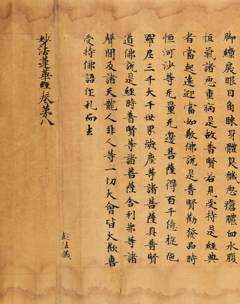 脚繚戾眼目角睞身體臭穢惡瘡膿血水腹
短氣諸惡重病是故普賢若見受持是經典
者當起遠迎當如敬佛說是普賢勸發品時
恒河沙等无量无邊菩薩得百千億旋陀
羅尼三千大千世界微塵等諸菩薩具普賢
道佛說是經時普賢等諸菩薩舍利弗等諸
聲聞及諸天龍人非人等一切大會皆大歡喜
受持佛語作禮而去
妙法蓮華經卷第八